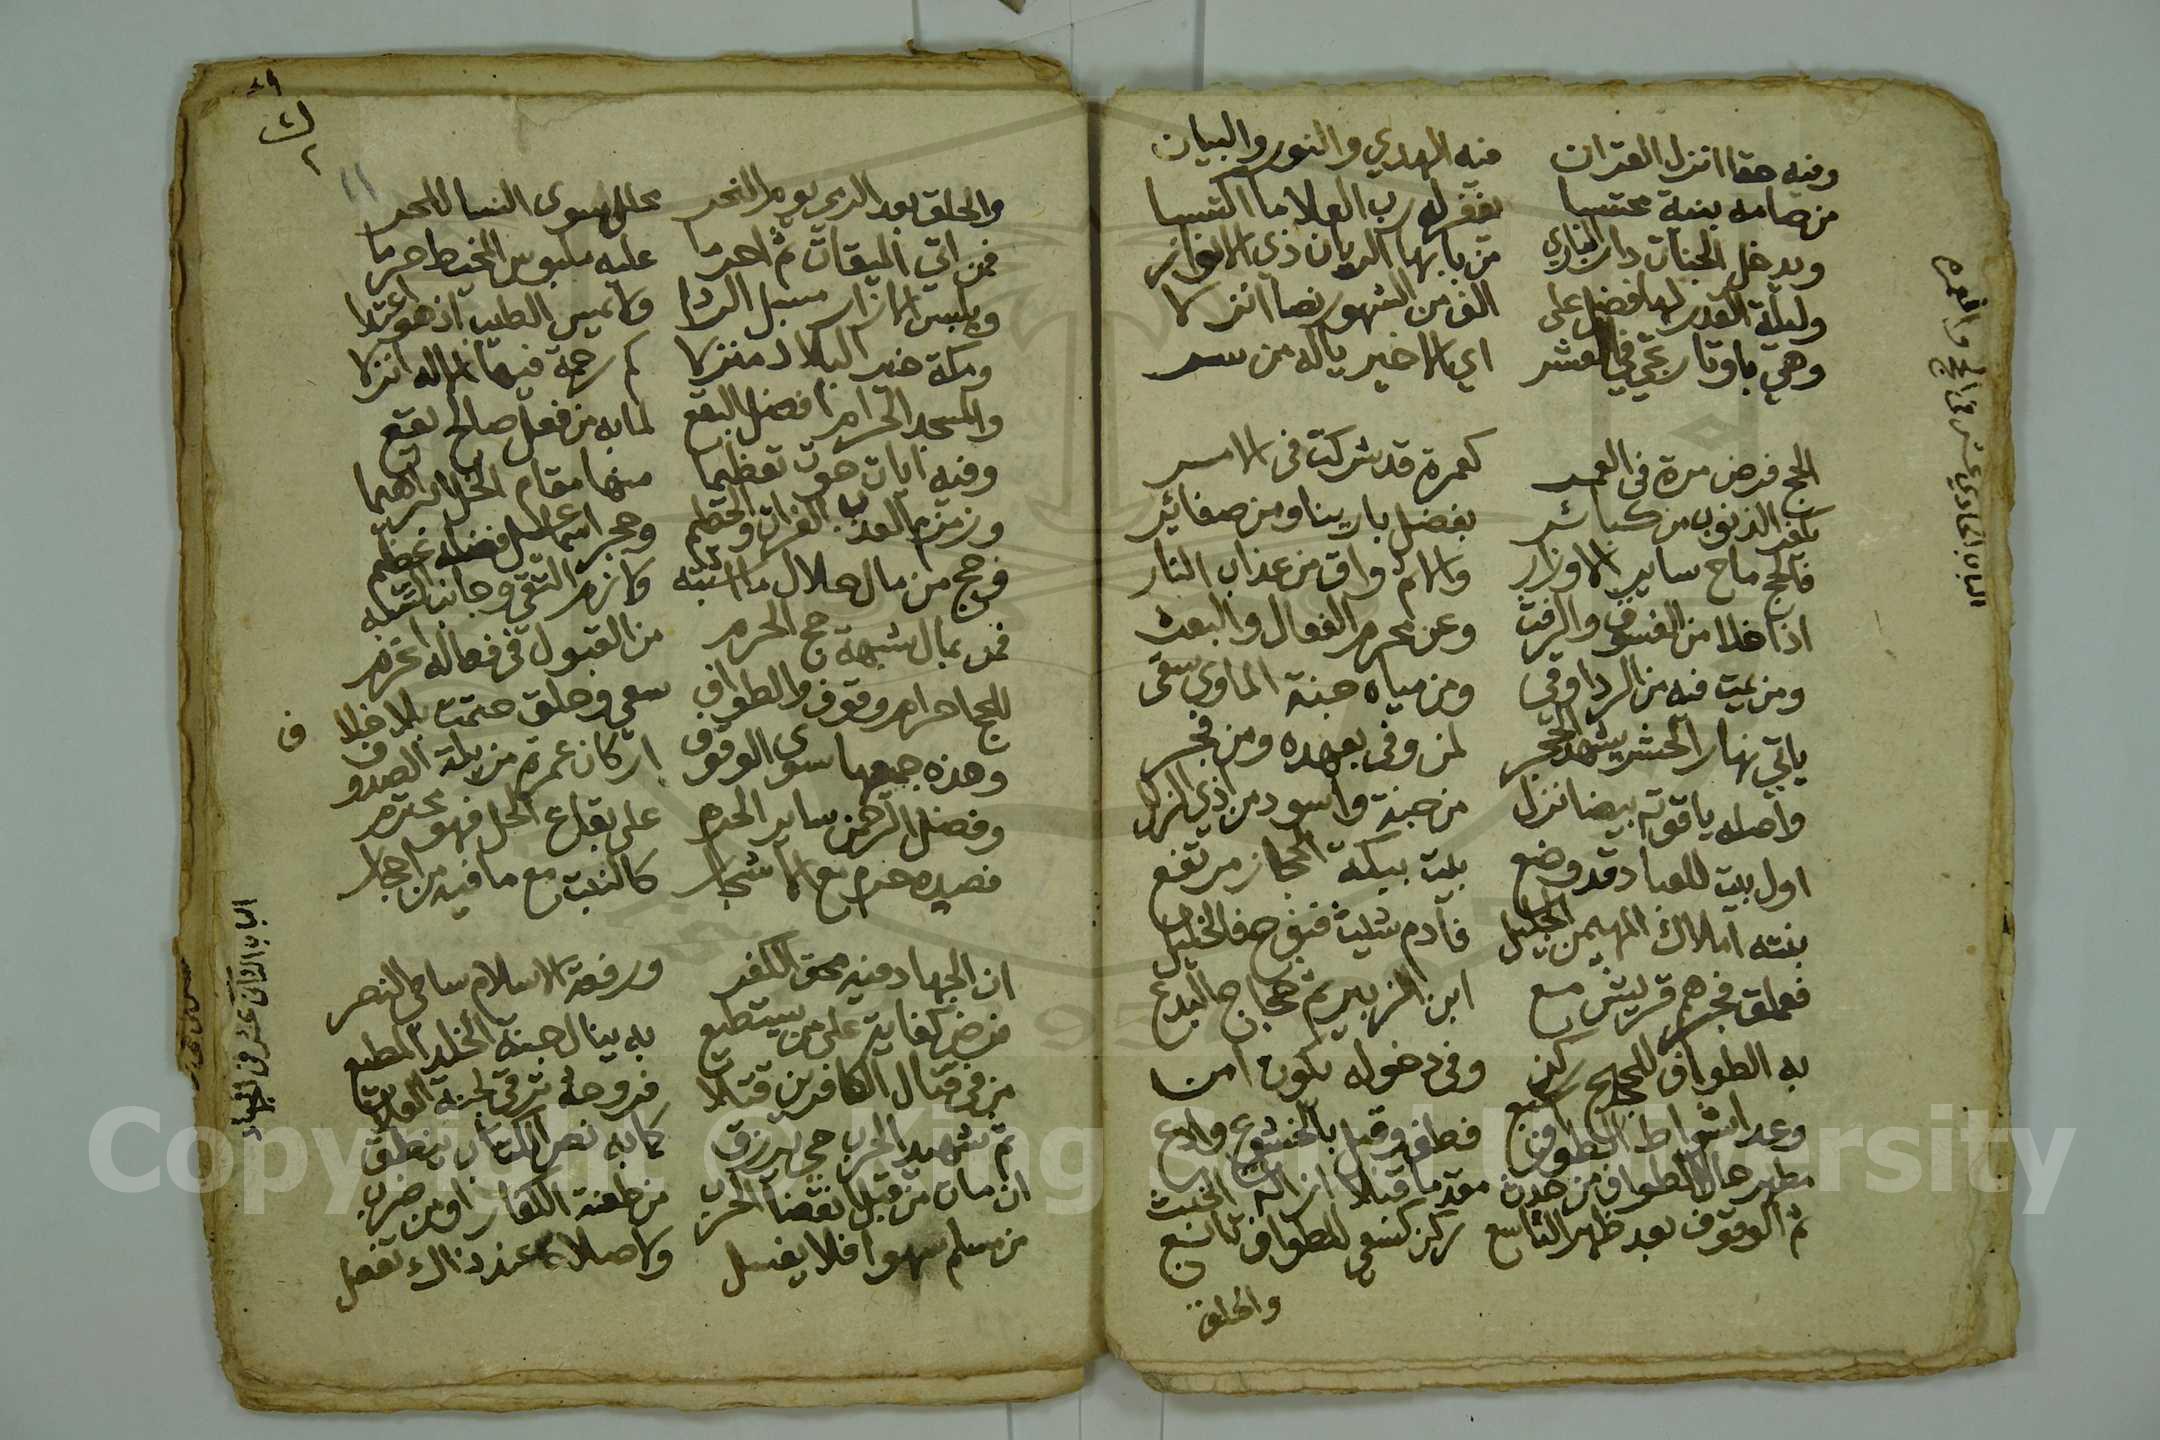 وفيه حقا انزل القران فيه الهدي والنور والبيان
من صامه بنية محتسبا يغفر له رب العلا ما اكتسبا
ويدخل الجنات دار الباري من بابها الريان ذي الانوار
وليلة القدر لها فضل على الف من الشهور نصا انزلا
وهي باوتار تجي في العشر اي الاخير ياله من سر
الباب الحادي عشر في الحج والعمره
الحج فرض مرة في العمر كعمرة قد شركت في الامر
يكفر الذنوب من كبائر بفضل بارينا ومن صغائر
فالحج ماح ساير الاوزار والاثم واق من عذاب النار
اذا خلا من الفسوق والرفث وعن محرم الفعال والبعث
ومن يمت فيه من الردا وقي ومن مياه جنة الماوي سقى
ياتي نهار الحشر يشهد الحجر لمن وفى بعهده ومن فجر
واصله ياقوتة بيضا نزل من جنة واسود من ذي الزلل
اول بيت للعباد قد وضع بيت ببكة الحجاز مرتفع
بنته املاك المهيمن الجليل فآدم شيث فنوح فالخليل
فعملق فجرهم قريش مع ابن الزبير ثم حجاج البدع
به الطواف للحجيج ركن وفي دخوله يكون امن
وعد اشواط الطواف سبع فطف وقبل بالخشوع وادع
مطهر حال الطواف من حدث مقدما قبلا ازالة الخبث
ثم الوقوف بعد ظهر التاسع ركن كسعي للطواف تابع
والحلق
٤٩
١١
والحلق بعد الرمي يوم النحر محلل سوى النسا للحر
فمن اتي الميقات ثم احرما عليه ملبوس المخيط حرما
ويلبس الازار مسبل الردا ولا يميس الطيب اذ هو اعتدا
ومكة خير البلاد منزلا كم رحمة فيها الاله انزلا
والمسجد الحرام افضل البقع لما به من فعل صالح يقع
وفيه ايات حوت تعظيما منها مقام الخل ابراهيما
وزمزم العذب الفرات والحطيم وحجر اسماعيل فضله عظيم
فحج من مال حلال ما اشتبه ولازم التقي وجانب الشبه
فمن بمال شبهة حج الحرم من القبول في فعاله انحرم
للحج احرام وقوف والطواف سعي وحلق حتمت بلا خلاف
وهذه جميعها سوى الوقوف اركان عمرة من بلة الصدوف
وفضل الرحمن ساير الحرم على بقاع الحل فهو محترم
فصيده حرم مع الاشجار كالنبت مع ما فيه من احجار
الباب الثاني عشر في الجهاد
ان الجهاد فيه محق الكفر ورفعة الاسلام سامي النصر
فرض كفاية على من يستطيع به ينال جنة الخلد المطيع
من في قتال الكافرين قتلا فروحه ترقى لجنة العلا
ثم شهيد الحرب حي يرزق كما به نص الكتاب ينطق
ان مات من قبل انقضا الحرب من طعنة الكفار او من ضرب
من مسلم سهوا فلا يغسل ولا صلاة عند ذاك تفعل